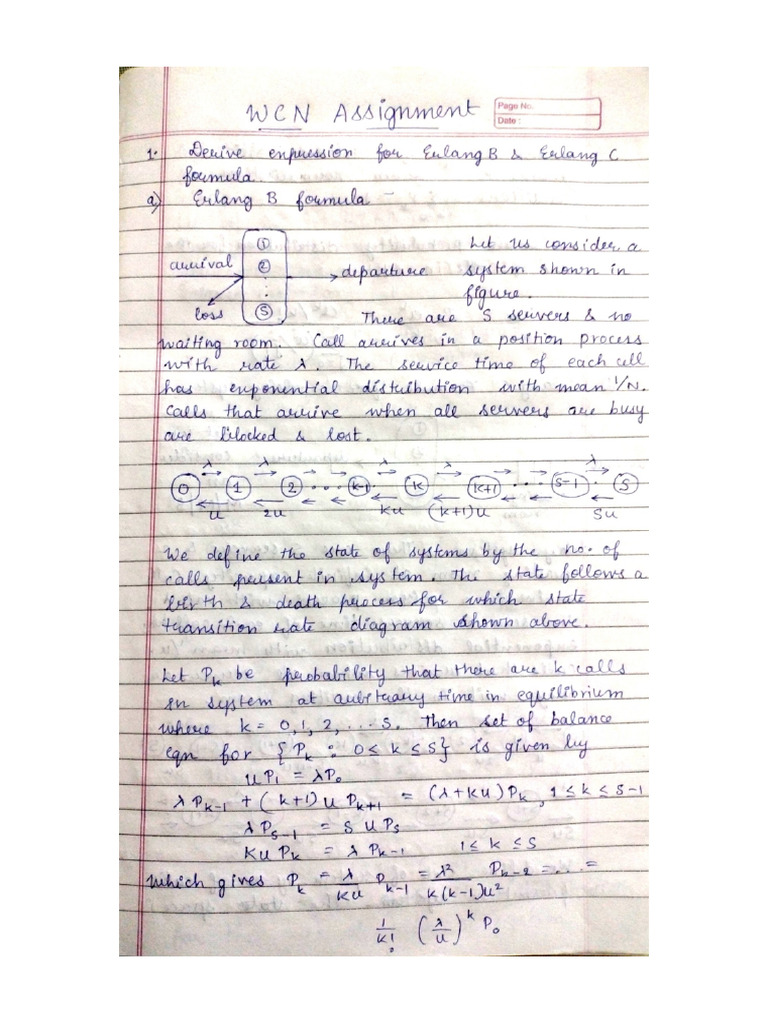 WCN Assignment
Page No.
Date :
1. Derive enpression for Erlang B & Erlang C
formula.
a) Erlang B formula –
arrival
loss
1
2
S
departure
Let us consider a
system shown in
figure.
There are S servers & no
waiting room. Call arrives in a position process
with rate λ. The service time of each cell
has exponential distribution with mean 1/N.
Calls that arrive when all servers are busy
are blocked & lost.
λ λ λ λ λ
0 1 2 ... k-1 k k+1 ... S-1 S
u 2u ku (k+1)u Su
We define the state of systems by the no. of
calls present in system. The state follows a
birth & death process for which state
transition rate diagram shown above.
Let Pk be probability that there are k calls
in system at arbitrary time in equilibrium
where k = 0, 1, 2, ... S. Then set of balance
eqn for {Pk : 0 ≤ k ≤ S} is given by
uP1 = λP0
λPk-1 + (k+1)uPk+1 = (λ+ku)Pk, 1 ≤ k ≤ S-1
λPS-1 = SuPS
kuPk = λPk-1 1 ≤ k ≤ S
which gives Pk = λ/ku Pk-1 = λ²/k(k-1)u² Pk-2 = ... =
1/k! (λ/u)^k P0